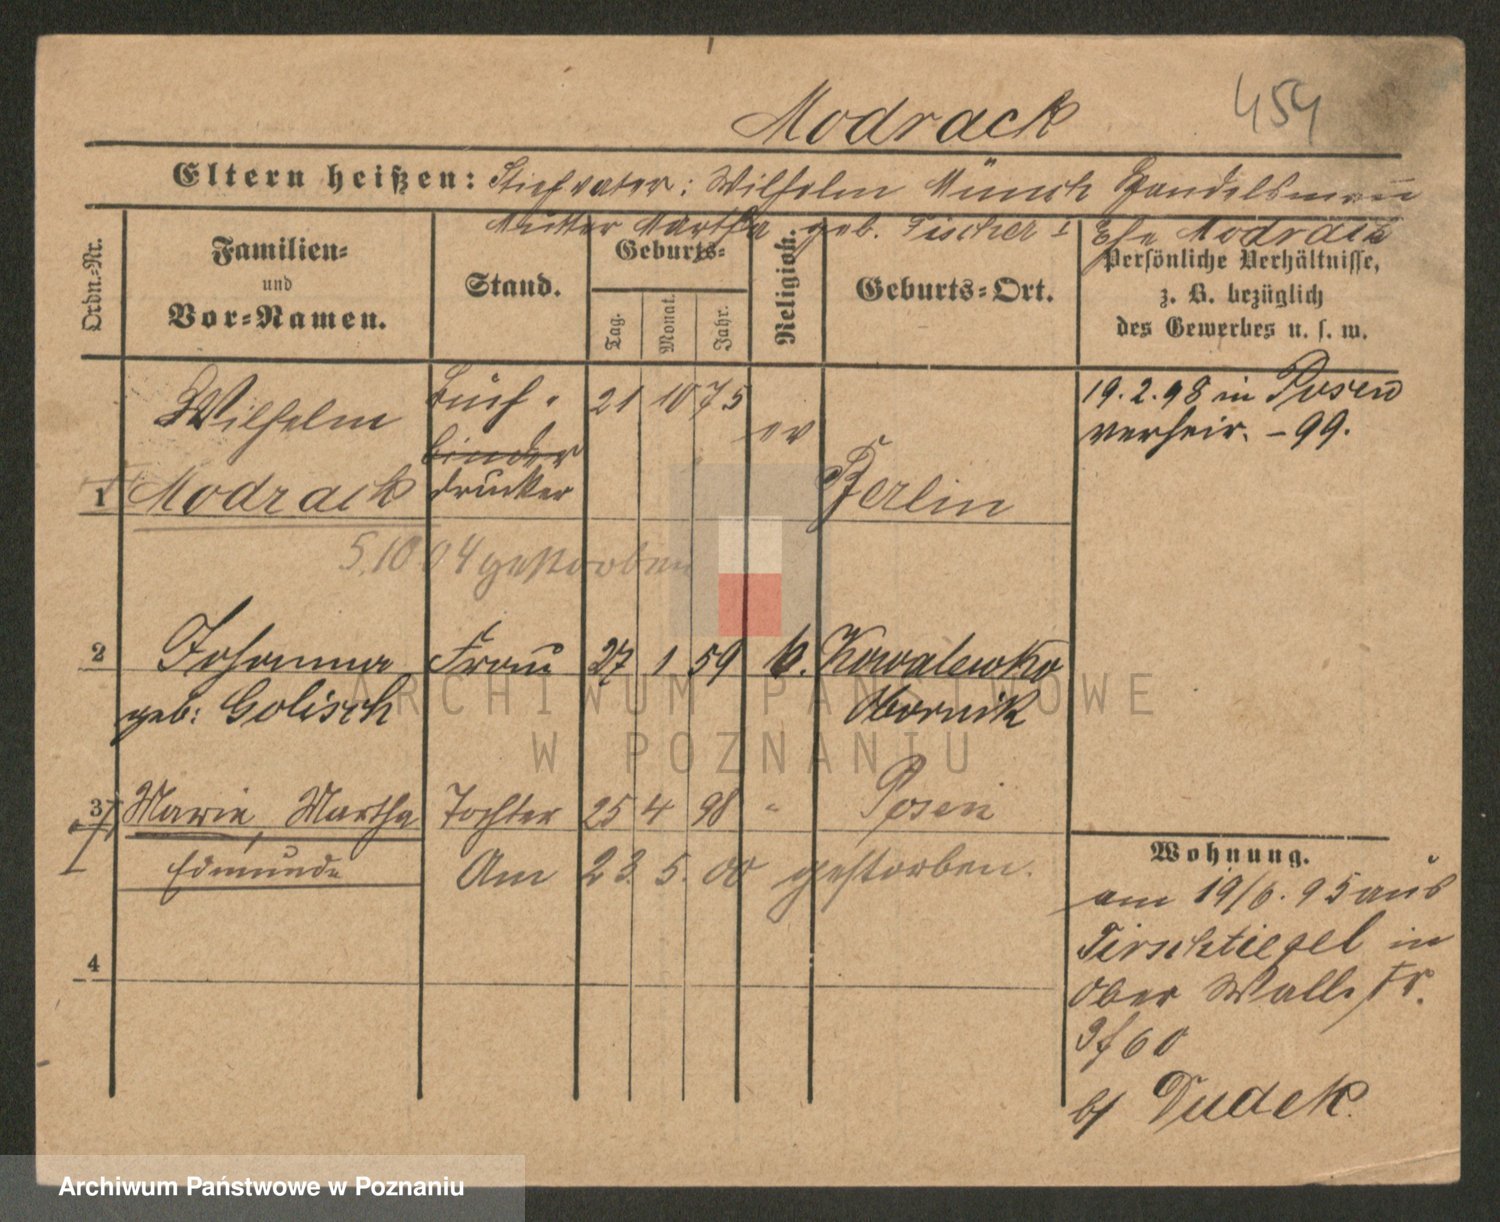 454
Modrack
Eltern heißen: Stiefvater: Wilhelm Münch Handelsmann
Mutter Martha geb. Fischer I Ehe Modrack
Ordn.-Nr.
Familien-
und
Vor-Namen.
Stand.
Geburts-
Tag.
Monat.
Jahr.
Religion.
Geburts-Ort.
Persönliche Verhältnisse,
z. B. bezüglich
des Gewerbes u. s. w.
1 Wilhelm
Modrack
Buch-
binder
drucker
21 10 75 ev Berlin
19.2.98 in Posen
verheir. - 99.
5.10 04 gestorben
2 Johanna Frau 27 1 59 k. Kowalewko
geb: Golisch Obornik
3 Marie, Martha Tochter 25 4 98 " Posen
Edmunde Am 23. 5. 00 gestorben.
4
Wohnung.
am 19/6. 95 aus
Tirschtiegel in
Ober Wall
60
b/ Dudek.
ARCHIWUM PAŃSTWOWE
W POZNANIU
Archiwum Państwowe w Poznaniu